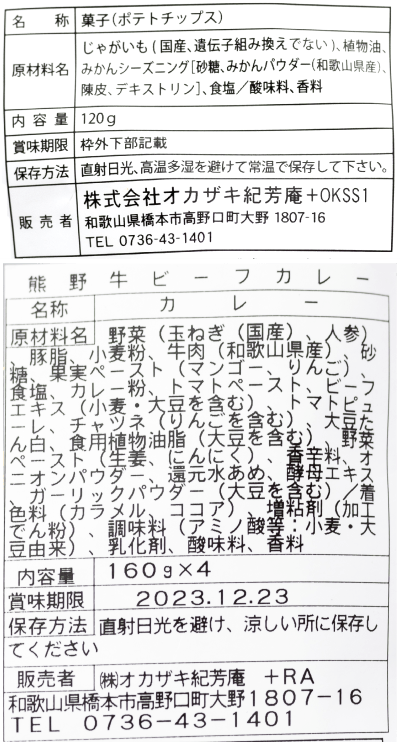 名称 菓子(ポテトチップス)
原材料名 じゃがいも(国産、遺伝子組み換えでない)、植物油、
みかんシーズニング[砂糖、みかんパウダー(和歌山県産)、
陳皮、デキストリン]、食塩/酸味料、香料
内容量 120g
賞味期限 枠外下部記載
保存方法 直射日光、高温多湿を避けて常温で保存して下さい。
販売者 株式会社オカザキ紀芳庵+OKSS1
和歌山県橋本市高野口町大野 1807-16
TEL 0736-43-1401
熊野牛ビーフカレー
名称 カレー
原材料名 野菜(玉ねぎ(国産)、人参)
、豚脂、小麦粉、牛肉(和歌山県産)、砂
糖、果実ペースト(マンゴー、りんご)、
食塩、カレー粉、トマトペースト、ビーフ
エキス(小麦・大豆を含む)、トマトピュ
ーレ、チャツネ(りんごを含む)、大豆た
ん白、食用植物油脂(大豆を含む)、野菜
ペースト(生姜、にんにく)、香辛料、オ
ニオンパウダー、還元水あめ、酵母エキス
、ガーリックパウダー(大豆を含む)/着
色料(カラメル、ココア)、増粘剤(加工
でん粉)、調味料(アミノ酸等:小麦・大
豆由来)、乳化剤、酸味料、香料
内容量 160g×4
賞味期限 2023.12.23
保存方法 直射日光を避け、涼しい所に保存し
てください
販売者 ㈱オカザキ紀芳庵 +RA
和歌山県橋本市高野口町大野1807-16
TEL 0736-43-1401